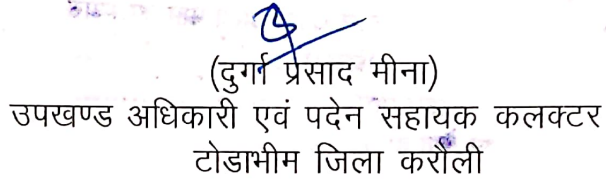 (दुर्गा प्रसाद मीना)
उपखण्ड अधिकारी एवं पदेन सहायक कलक्टर
टोडाभीम जिला करौली